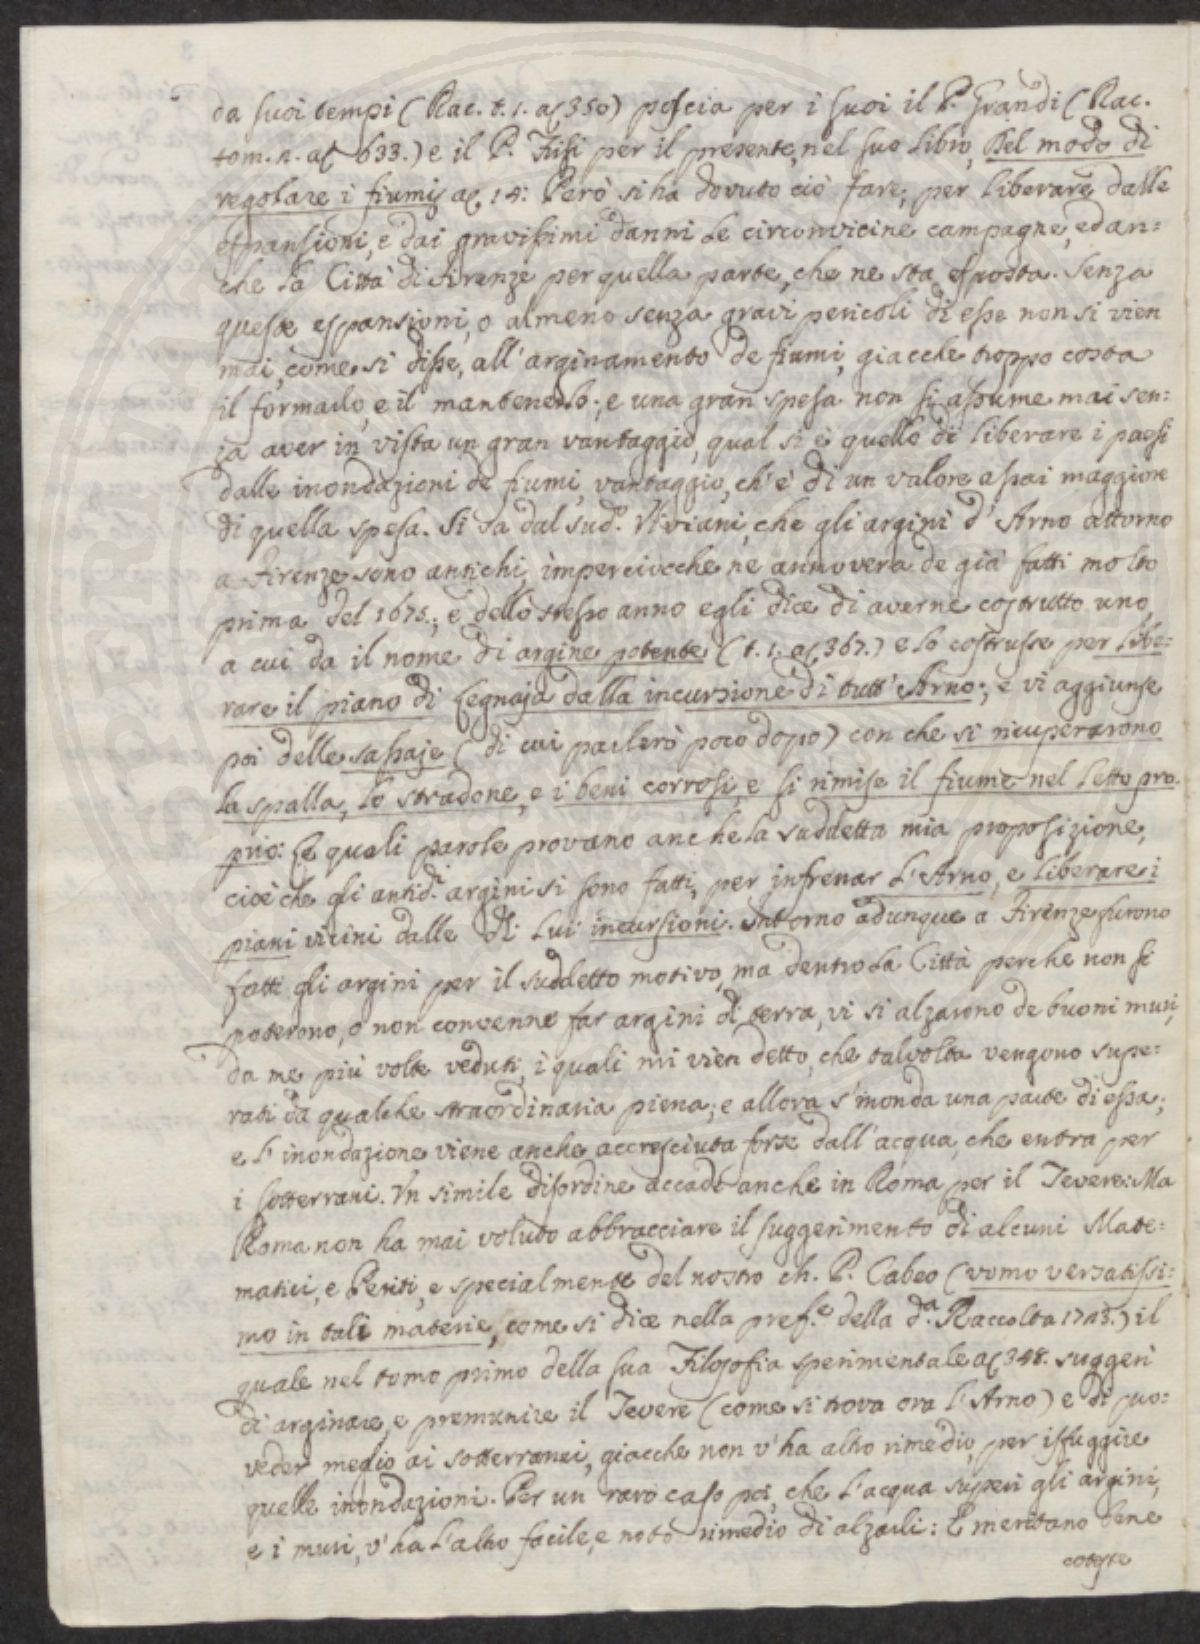 da suoi tempi (Rac. t. 1. ac 350) poscia per i suoi il P. Grandi (Rac.
tom. 2. ac 633.) e il P. Frisi per il presente, nel suo libro, Del modo di
regolare i fiumi, ac. 14: Però si ha dovuto ciò fare, per liberare dalle
espansioni, e dai gravissimi danni le circonvicine campagne, ed an:
che la Città di Firenze per quella parte, che ne sta esposta. Senza
queste espansioni, o almeno senza gravi pericoli di esse non si vien
mai, come si disse, all'arginamento de fiumi, giacche troppo costa
il formarlo, e il mantenerlo; e una gran spesa non si assume mai sen:
za aver in vista un gran vantaggio, qual si è quello di liberare i paesi
dalle inondazioni de fiumi, vantaggio, ch'è di un valore assai maggiore
di quella spesa. Si sa dal sud.º Viviani, che gli argini d'Arno attorno
a Firenze sono antichi, imperciocche ne annovera de già fatti molto
prima del 1675.; e dello stesso anno egli dice di averne costrutto uno,
a cui da il nome di argine potente (t. 1. ac 367.) e lo costrusse per libe:
rare il piano di Legnaja dalla incursione di tutt'Arno; e vi aggiunse
poi delle sassaje (di cui parlerò poco dopo) con che si ricuperarono
la spalla, lo stradone, e i beni corrosi, e si rimise il fiume nel letto pro:
prio: Le quali parole provano anche la suddetta mia proposizione,
cioè che gli antid.i argini si sono fatti, per infrenar l'Arno, e liberare i
piani vicini dalle di lui incursioni. Intorno adunque a Firenze furono
fatti gli argini per il suddetto motivo, ma dentro la Città perche non si
poterono, o non convenne far argini di terra, vi si alzarono de buoni muri,
da me più volte veduti, i quali mi vien detto, che talvolta vengono supe:
rati da qualche straordinaria piena; e allora s'inonda una parte di essa;
e l'inondazione viene anche accresciuta forse dall'acqua, che entra per
i sotterrani. Un simile disordine accade anche in Roma per il Tevere: Ma
Roma non ha mai voluto abbracciare il suggerimento di alcuni Mate:
matici, e Periti, e specialmente del nostro ch. P. Cabeo (uomo versatissi:
mo in tali materie, come si dice nella pref.e della d.a Raccolta 1723.) il
quale nel tomo primo della sua Filosofia sperimentale ac 348. suggerì
di arginare, e premunire il Tevere (come si trova ora l'Arno) e di prov:
veder meglio ai sotterranei, giacche non v'ha altro rimedio, per isfuggire
quelle inondazioni. Per un raro caso poi, che l'acqua superi gli argini,
e i muri, v'ha l'altro facile, e noto rimedio di alzarli: E meritano bene
coteste